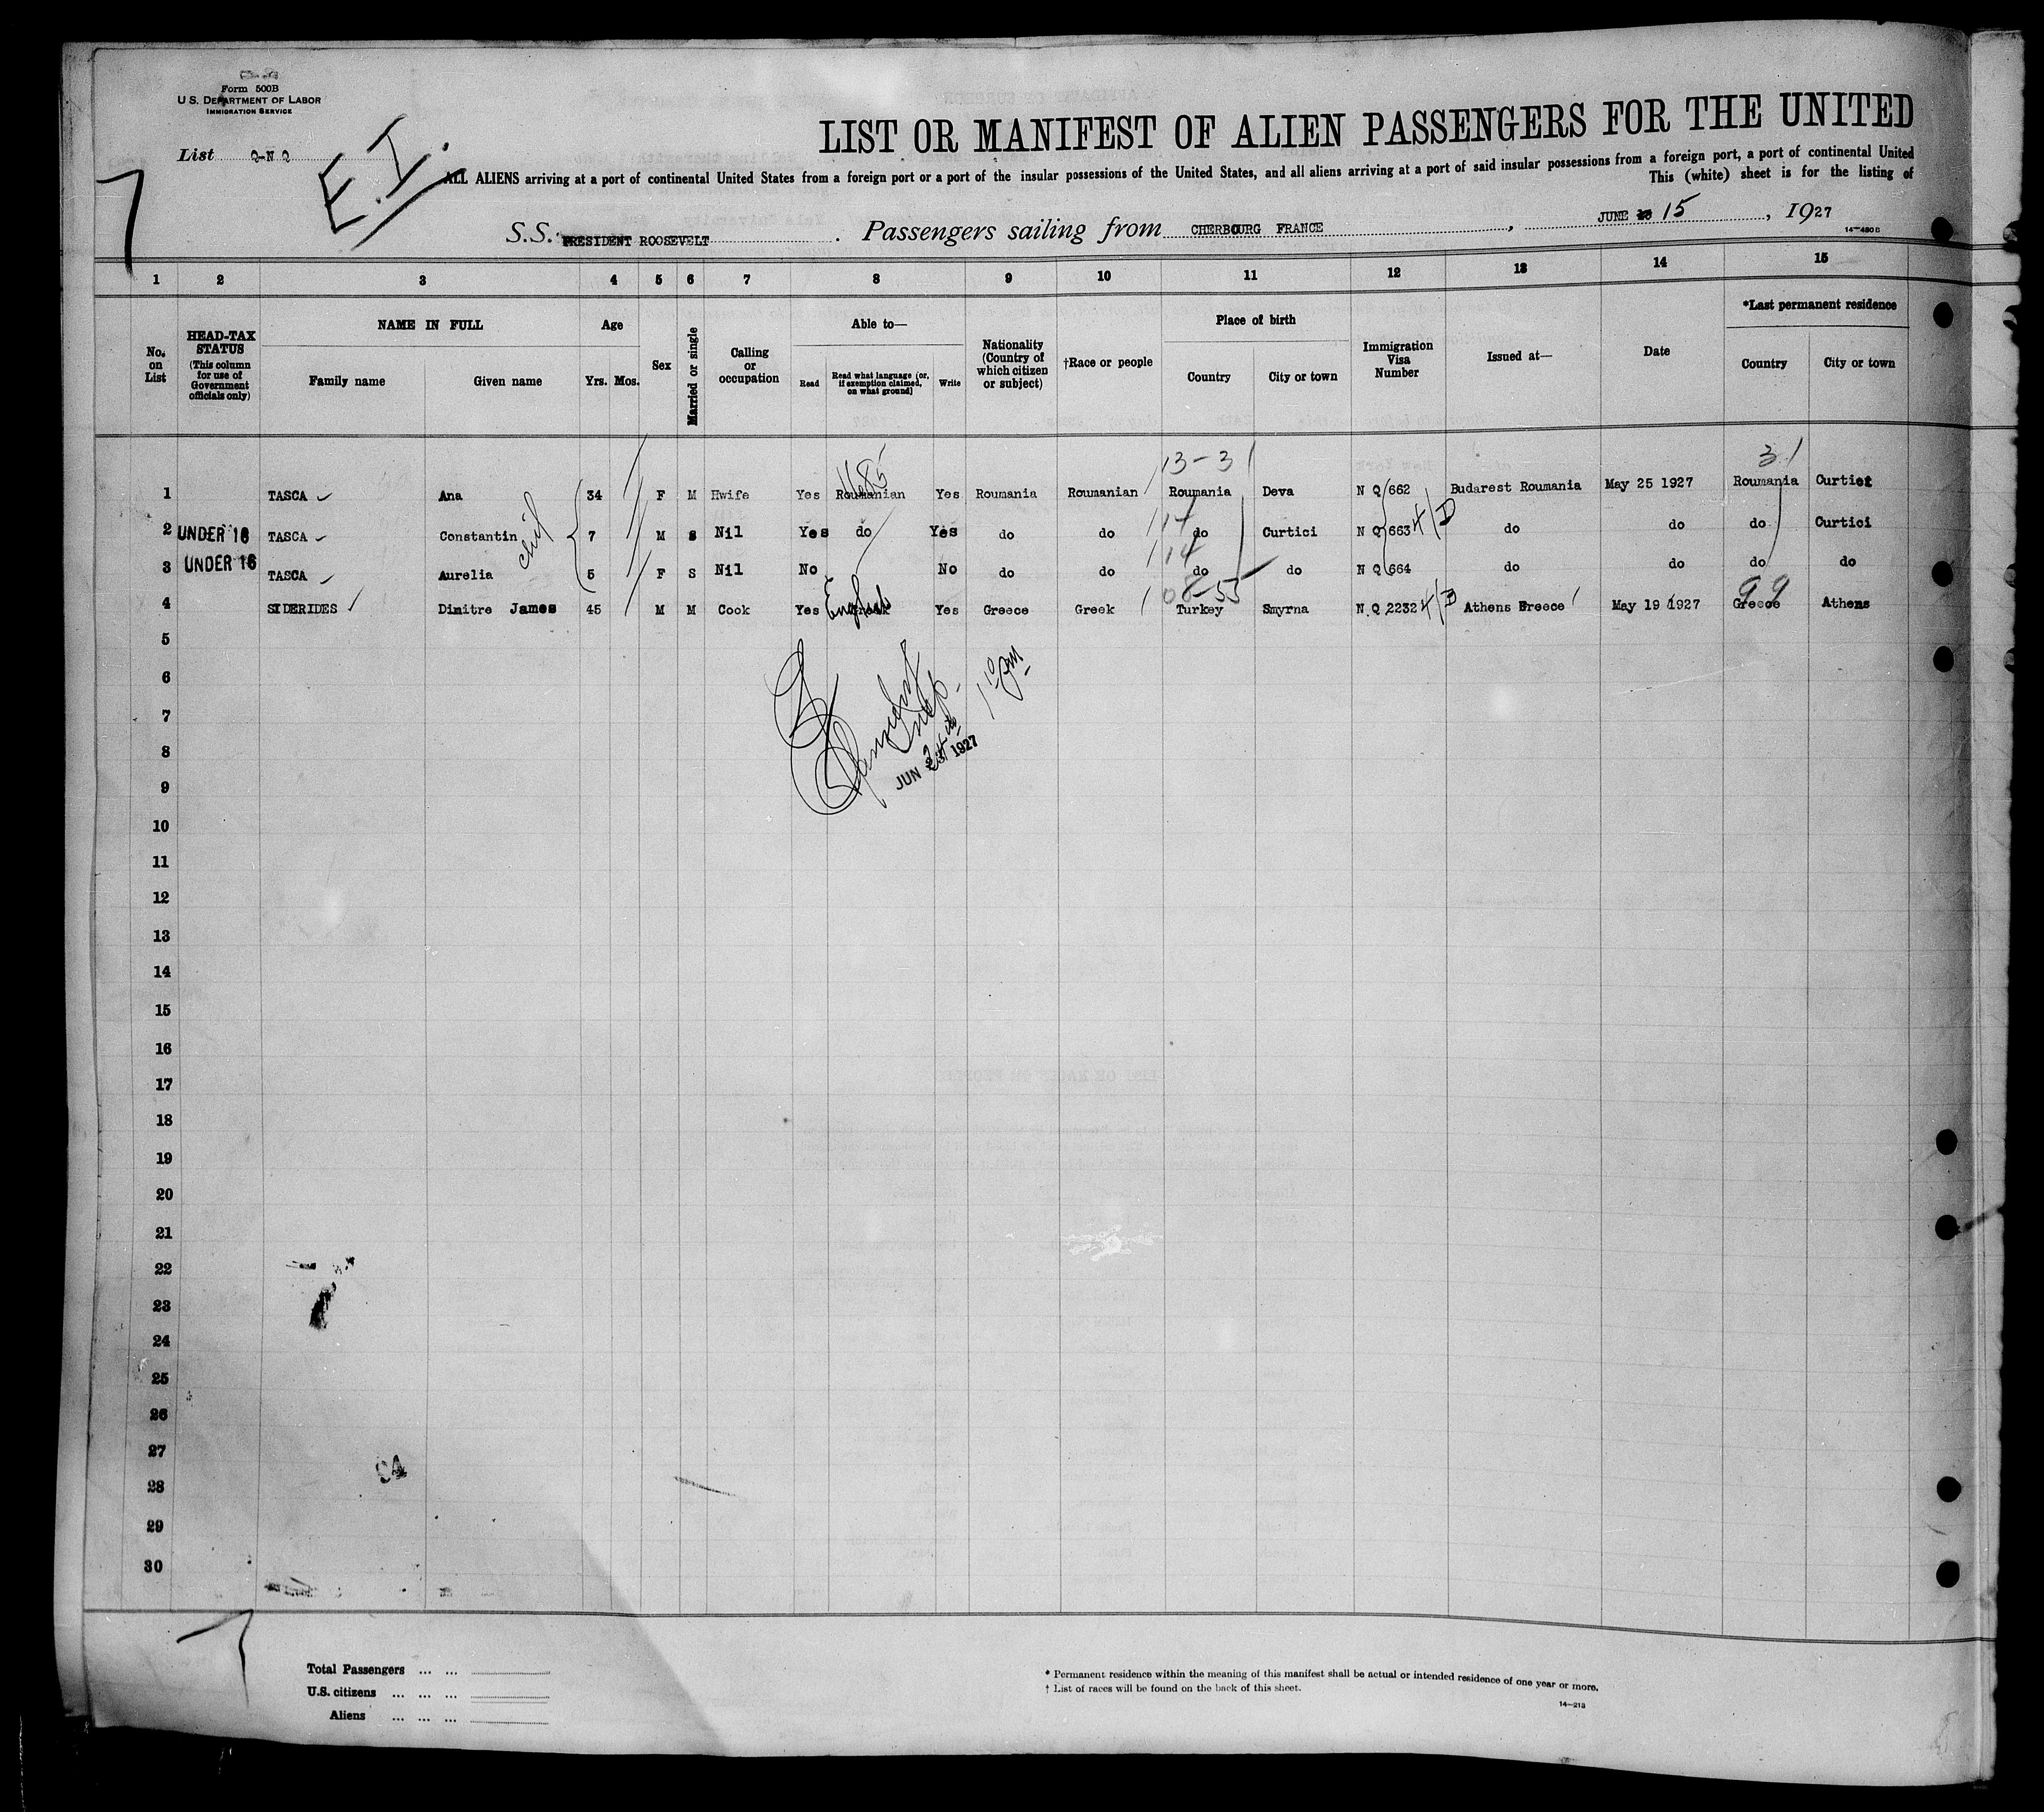 Form 500B
U. S. DEPARTMENT OF LABOR
IMMIGRATION SERVICE
List Q-N Q
E.I.
LIST OR MANIFEST OF ALIEN PASSENGERS FOR THE UNITED
ALL ALIENS arriving at a port of continental United States from a foreign port or a port of the insular possessions of the United States, and all aliens arriving at a port of said insular possessions from a foreign port, a port of continental United
This (white) sheet is for the listing of
S.S. PRESIDENT ROOSEVELT. Passengers sailing from CHERBOURG FRANCE, JUNE 15, 1927
14—480 B
1 2 3 4 5 6 7 8 9 10 11 12 13 14 15
No. on List
HEAD-TAX STATUS (This column for use of Government officials only)
NAME IN FULL
Family name Given name
Age
Yrs. Mos.
Sex
Married or single
Calling or occupation
Able to—
Read
Read what language (or, if exemption claimed, on what ground)
Write
Nationality (Country of which citizen or subject)
†Race or people
Place of birth
Country City or town
Immigration Visa Number
Issued at—
Date
*Last permanent residence
Country City or town
1685 13-3 31
1 TASCA Ana 34 F M Hwife Yes Roumanian Yes Roumania Roumanian Roumania Deva N Q 662 Budarest Roumania May 25 1927 Roumania Curtici
2 UNDER 16 TASCA Constantin 7 M S Nil Yes do Yes do do 14 do Curtici N Q 663 do do do Curtici
3 UNDER 16 TASCA Aurelia 5 F S Nil No No do do 14 do do N Q 664 do do do do
08-55 99
4 SIDERIDES Dimitre James 45 M M Cook Yes English Greek Yes Greece Greek Turkey Smyrna N.Q 2232 Athens Greece May 19 1927 Greece Athens
5
6
7
8
JUN 1927
9
10
11
12
13
14
15
16
17
18
19
20
21
22
23
24
25
26
27
28
29
30
Total Passengers ... ...
U.S. citizens ... ... ...
Aliens ... ... ...
* Permanent residence within the meaning of this manifest shall be actual or intended residence of one year or more.
† List of races will be found on the back of this sheet.
14—213